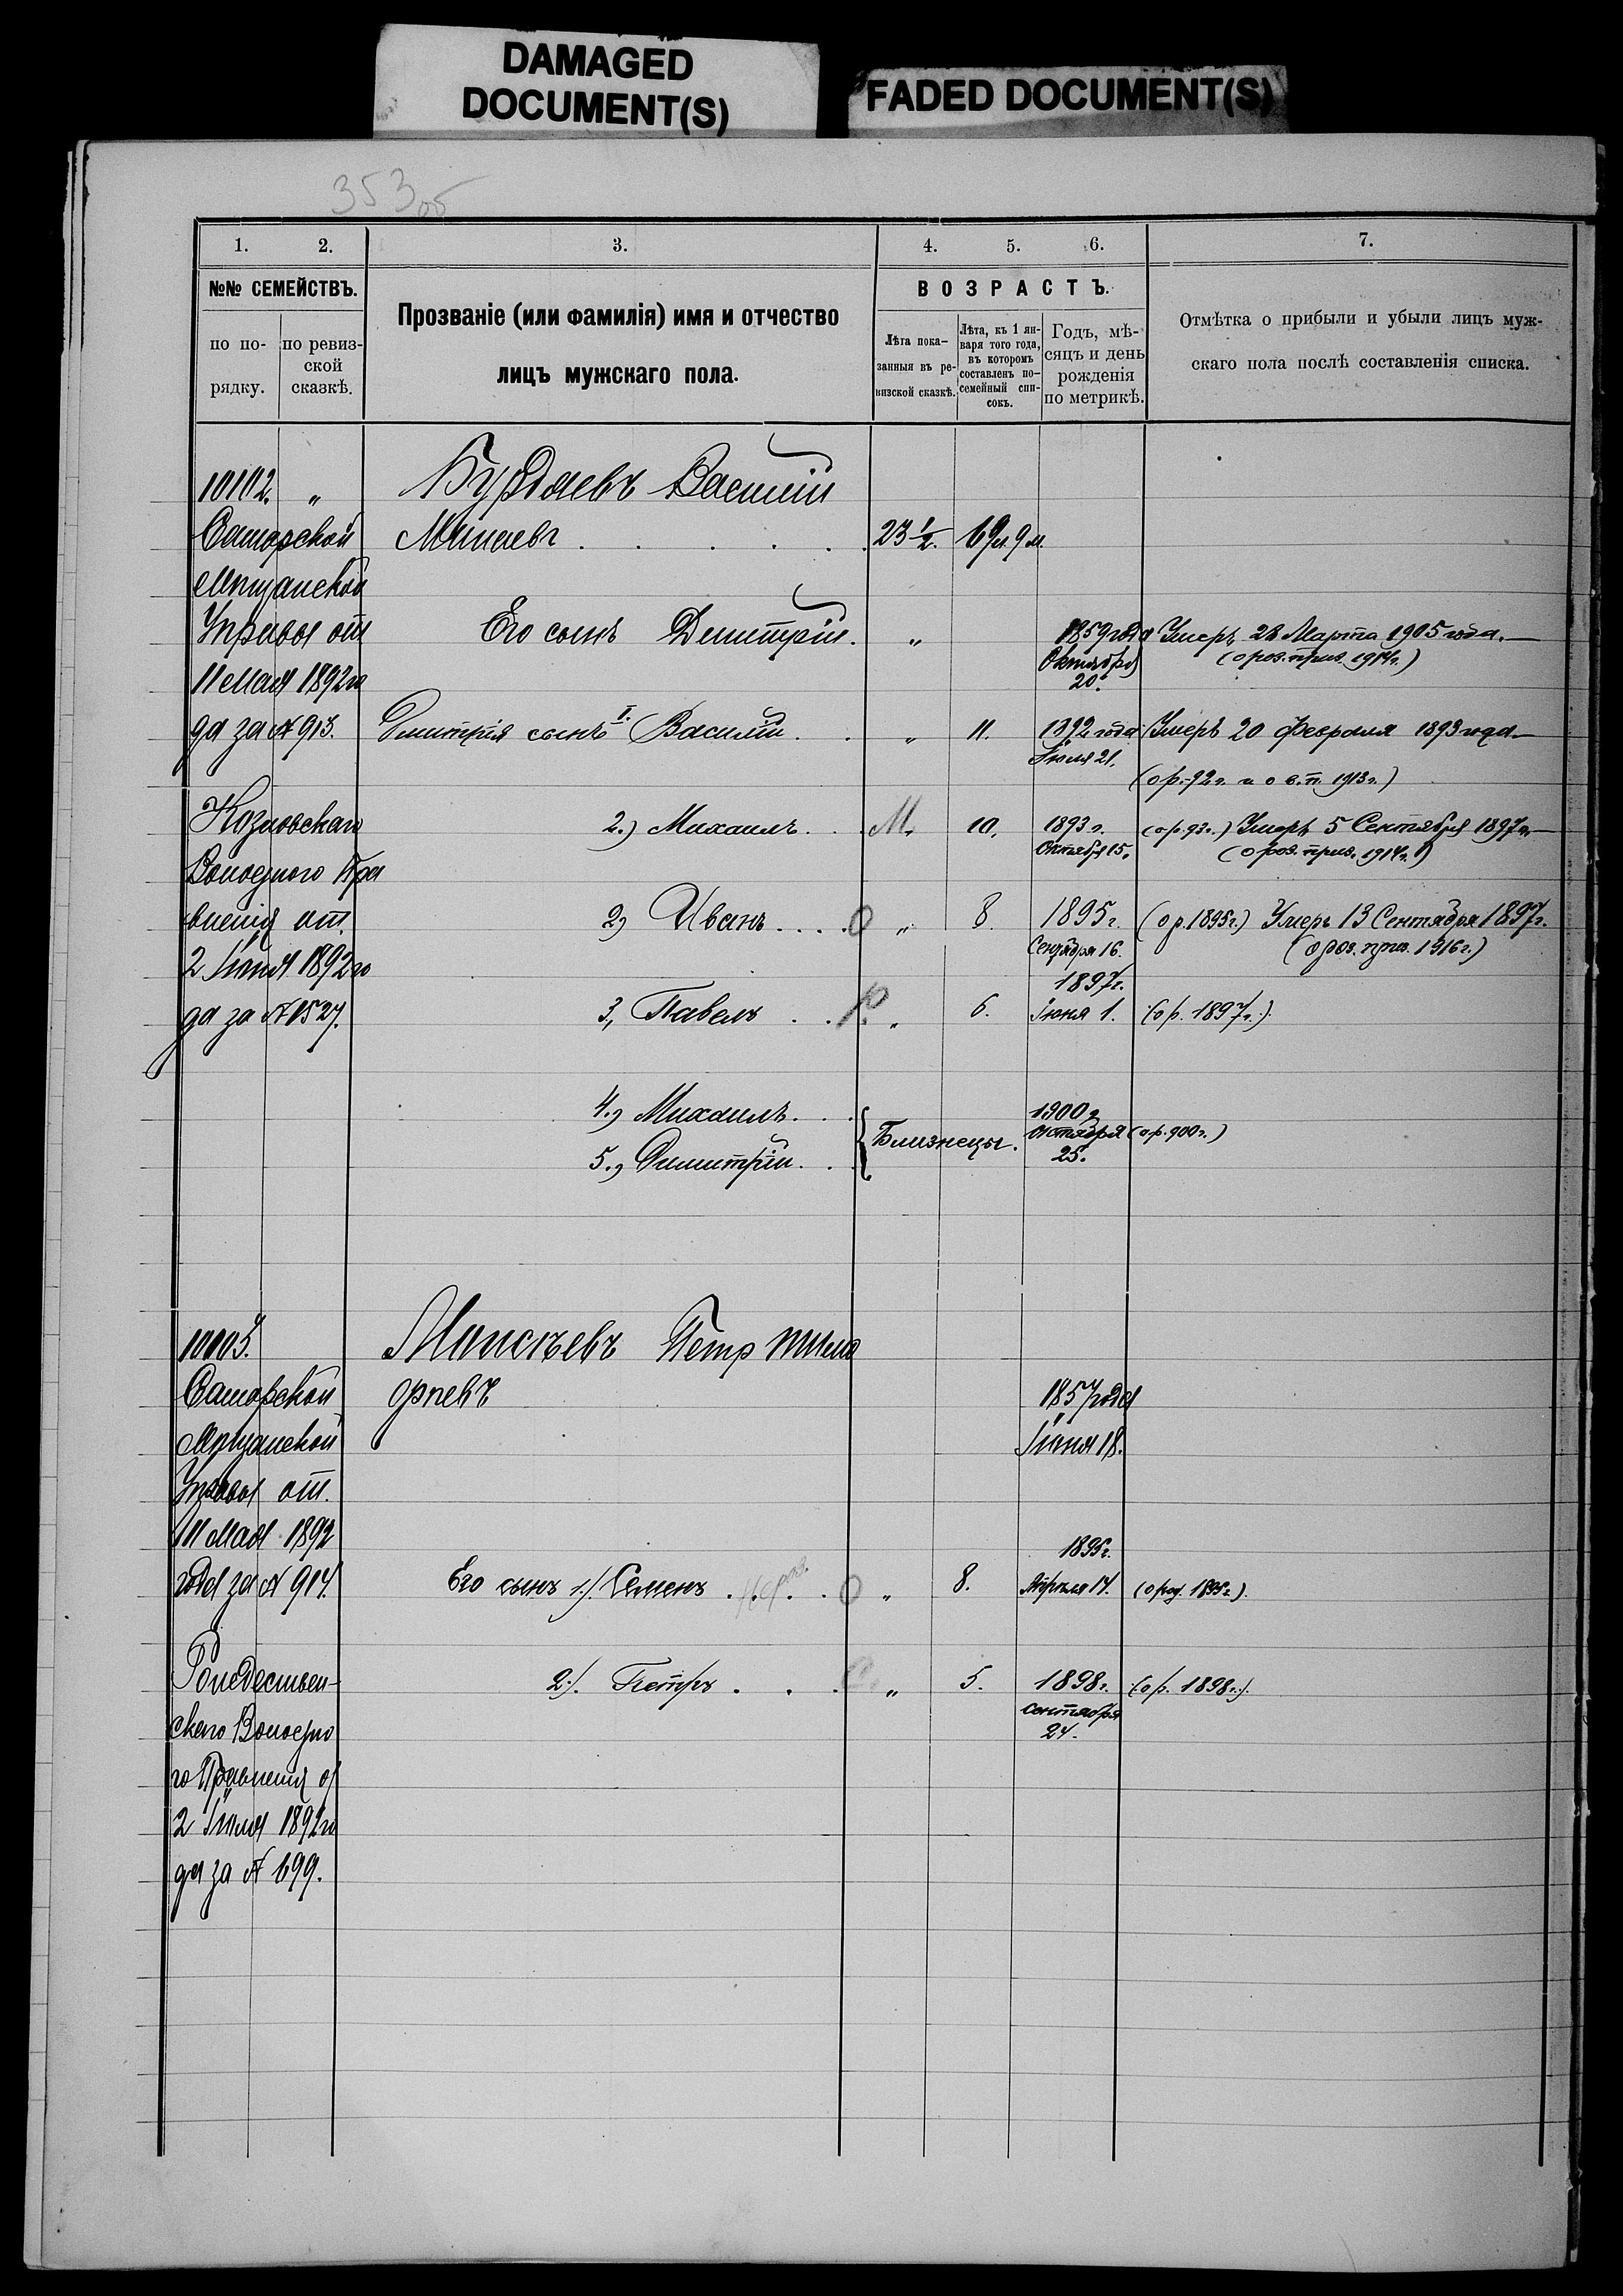 DAMAGED
DOCUMENT(S)
FADED DOCUMENT(S)
353 об
1. 2. 3. 4. 5. 6. 7.
№№ СЕМЕЙСТВЪ.
по по-
рядку.
по ревиз-
ской
сказкѣ.
Прозваніе (или фамилія) имя и отчество
лицъ мужскаго пола.
ВОЗРАСТЪ.
Лѣта пока-
занныя въ ре-
визской сказкѣ.
Лѣта, къ 1 ян-
варя того года,
въ которомъ
составленъ по-
семейный спи-
сокъ.
Годъ, мѣ-
сяцъ и день
рожденія
по метрикѣ.
Отмѣтка о прибыли и убыли лицъ муж-
скаго пола послѣ составленія списка.
10102. "
Самарской
Мѣщанской
Управы от
11 Мая 1892 го
да за № 913.
Козловскаго
Волостного Пра
вленія от.
2 Іюня 1892 го
да за № 1527.
Бурдаевъ Василій
Минаевъ . . . . . 23 1/2. 69 л. 9 м.
Его сынъ Демитрій. " 1859 года Умеръ 28 Марта 1905 года.
Октября (о роз. приз. 1914 г.)
20.
Дмитрія сынъ I. Василій . . " 11. 1892 года Умеръ 20 Февраля 1893 года
Іюля 21.
(о р. 92 г. и о в. п. 1913 г.)
2.) Михаилъ . . М. 10. 1893 г. (о р. 93 г.) Умеръ 5 Сентября 1897 г.
Октября 15. (о роз. приз. 1914 г.)
2) Иванъ . . . . " 8. 1895 г. (о р. 1895 г.) Умеръ 13 Сентября 1897 г.
Сентября 16. (о роз. приз. 1916 г.)
1897 г.
3, Павелъ . . " 6. Іюня 1. (о р. 1897 г.).
4.) Михаилъ . .
5.) Димитрій . .
Близнецы.
1900 г.
Октября (о р. 900 г.)
25.
10103.
Самарской
Мѣщанской
Управы от.
11 Мая 1892
года за № 914.
Рождествен-
скаго Волостно
го Правленія от
2 Іюля 1892 го
да за № 699.
Моисѣевъ Петр Тимо
ѳеевъ 1857 года
Іюня 18.
1895 г.
Его сынъ 1.) Семенъ . . . . " 8. Апрѣля 17. (о род. 1895 г.).
2.) Петръ . . . " 5. 1898 г. (о р. 1898 г.).
Сентября
24.